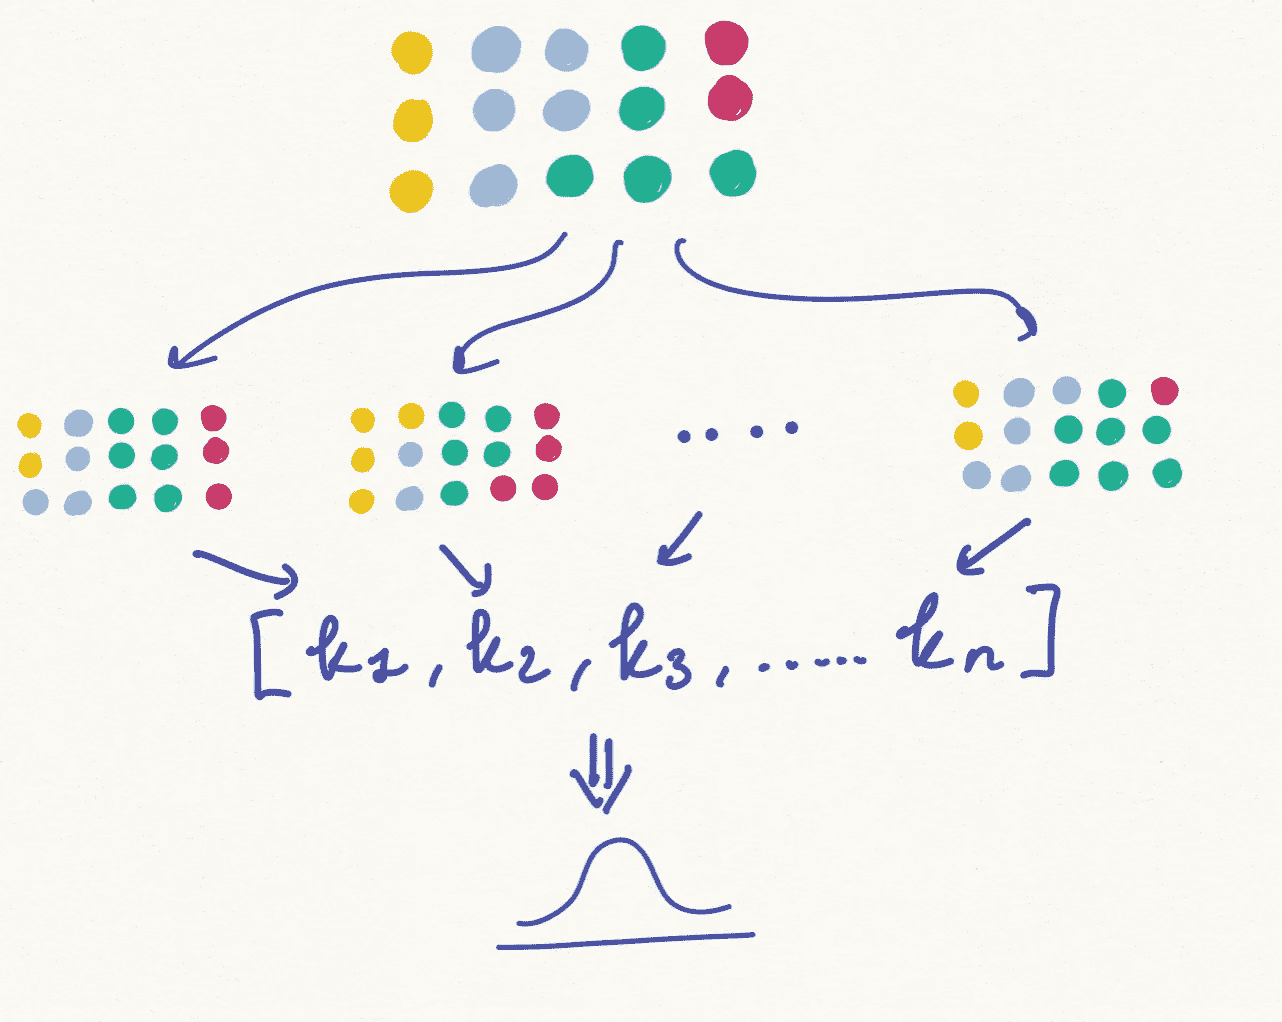 [ k1, k2, k3, ...... kn ]